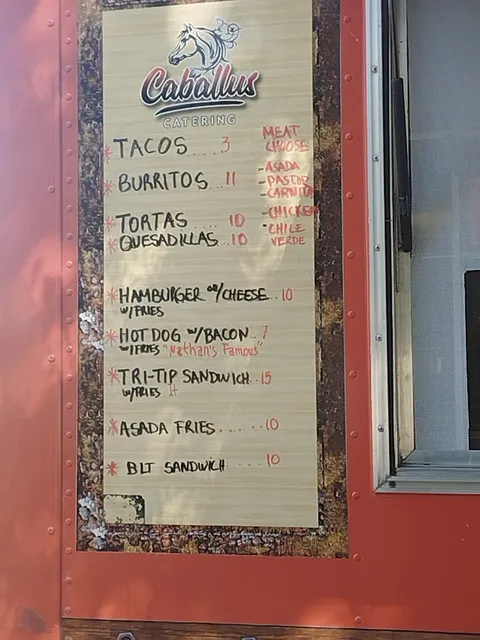 Caballus
CATERING
MEAT
CHOOSE
* TACOS .... 3
- ASADA
- PASTOR
- CARNITA
* BURRITOS .. 11
* TORTAS ..... 10
- CHICKEN
- CHILE
VERDE
* QUESADILLAS .. 10
* HAMBURGER w/CHEESE .. 10
w/FRIES
* HOT DOG w/BACON .. 7
w/FRIES "Nathan's Famous"
* TRI-TIP SANDWICH . 15
w/FRIES
* ASADA FRIES ...... 10
* BLT SANDWICH ..... 10